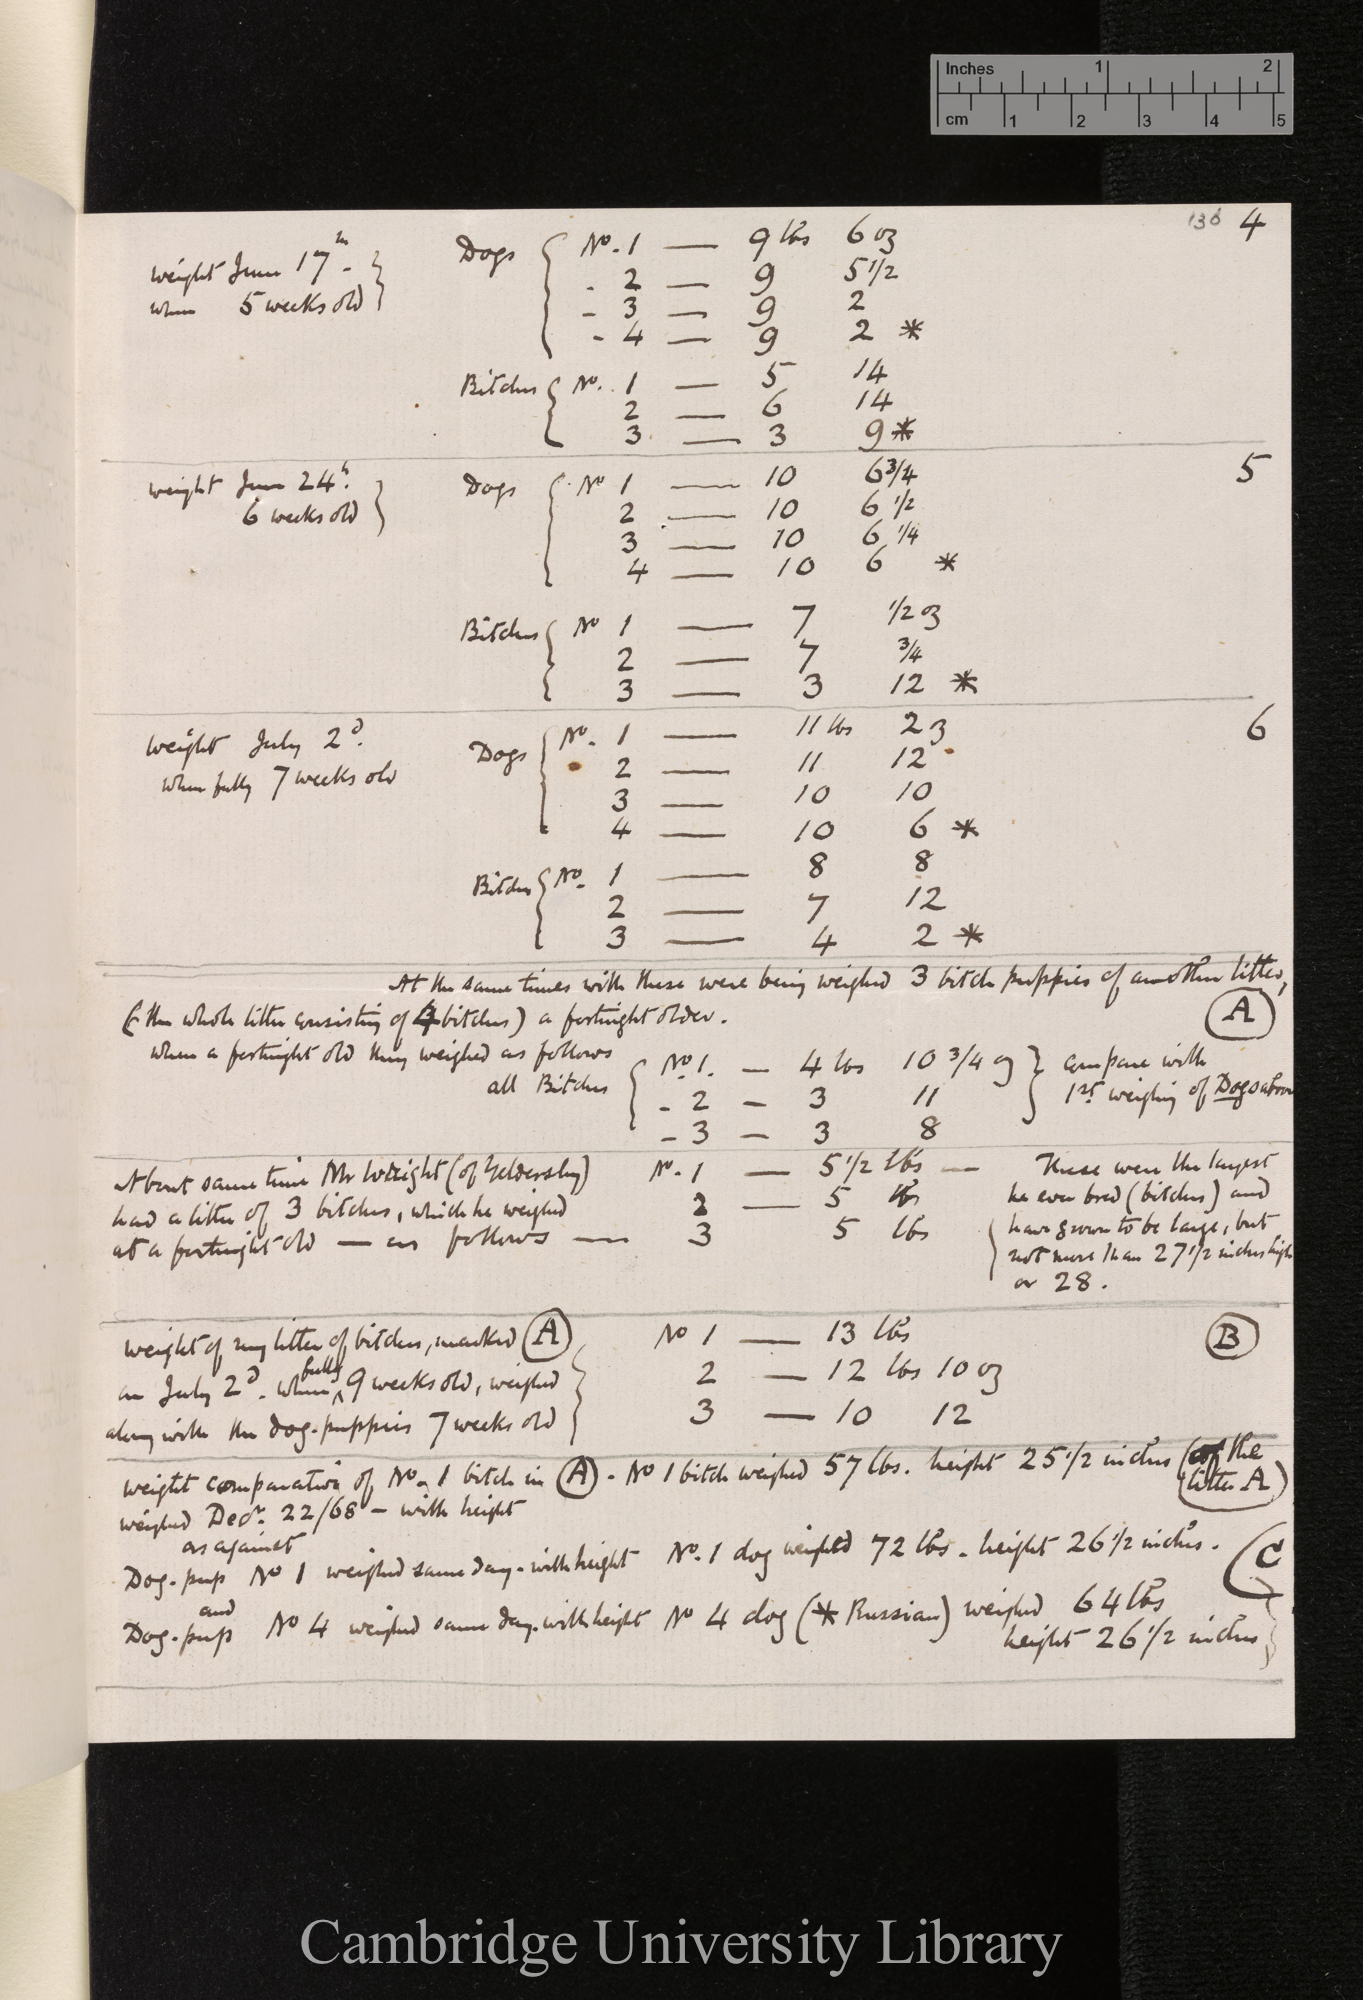 Inches 1 2
cm 1 2 3 4 5
136 4
weight June 17th. Dogs No. 1 — 9 lbs 6 oz
when 5 weeks old - 2 — 9 5 1/2
- 3 — 9 2
- 4 — 9 2 *
Bitches No. 1 — 5 14
2 — 6 14
3 — 3 9 *
weight June 24th. Dogs No 1 — 10 6 3/4 5
6 weeks old 2 — 10 6 1/2
3 — 10 6 1/4
4 — 10 6 *
Bitches No 1 — 7 1/2 oz
2 — 7 3/4
3 — 3 12 *
weight July 2d. Dogs No. 1 — 11 lbs 2 oz 6
when fully 7 weeks old 2 — 11 12
3 — 10 10
4 — 10 6 *
Bitches No. 1 — 8 8
2 — 7 12
3 — 4 2 *
At the same times with these were being weighed 3 bitch puppies of another litter,
(the whole litter consisting of bitches) a fortnight older. A
when a fortnight old they weighed as follows
all Bitches No. 1. — 4 lbs 10 3/4 oz compare with
- 2 — 3 11 1st weighing of Dogs above
- 3 — 3 8
About same time Mr Wright (of Yeldersley) No. 1 — 5 1/2 lbs — These were the largest
had a litter of 3 bitches, which he weighed 2 — 5 lbs he ever bred (bitches) and
at a fortnight old — as follows — 3 5 lbs have grown to be large, but
not more than 27 1/2 inches high
or 28.
weight of my litter of bitches, marked A No 1 — 13 lbs B
on July 2d. when fully 9 weeks old, weighed 2 — 12 lbs 10 oz
along with the dog-puppies 7 weeks old 3 — 10 12
weight comparation of No. 1 bitch in A. No 1 bitch weighed 57 lbs. height 25 1/2 inches (of the
litter A)
weighed Decr. 22/68 — with height
as against
Dog-pup No 1 weighed same day-with height No. 1 dog weighed 72 lbs. height 26 1/2 inches. C
and
Dog-pup No 4 weighed same day-with height No 4 dog (* Russian) weighed 64 lbs
height 26 1/2 inches
Cambridge University Library